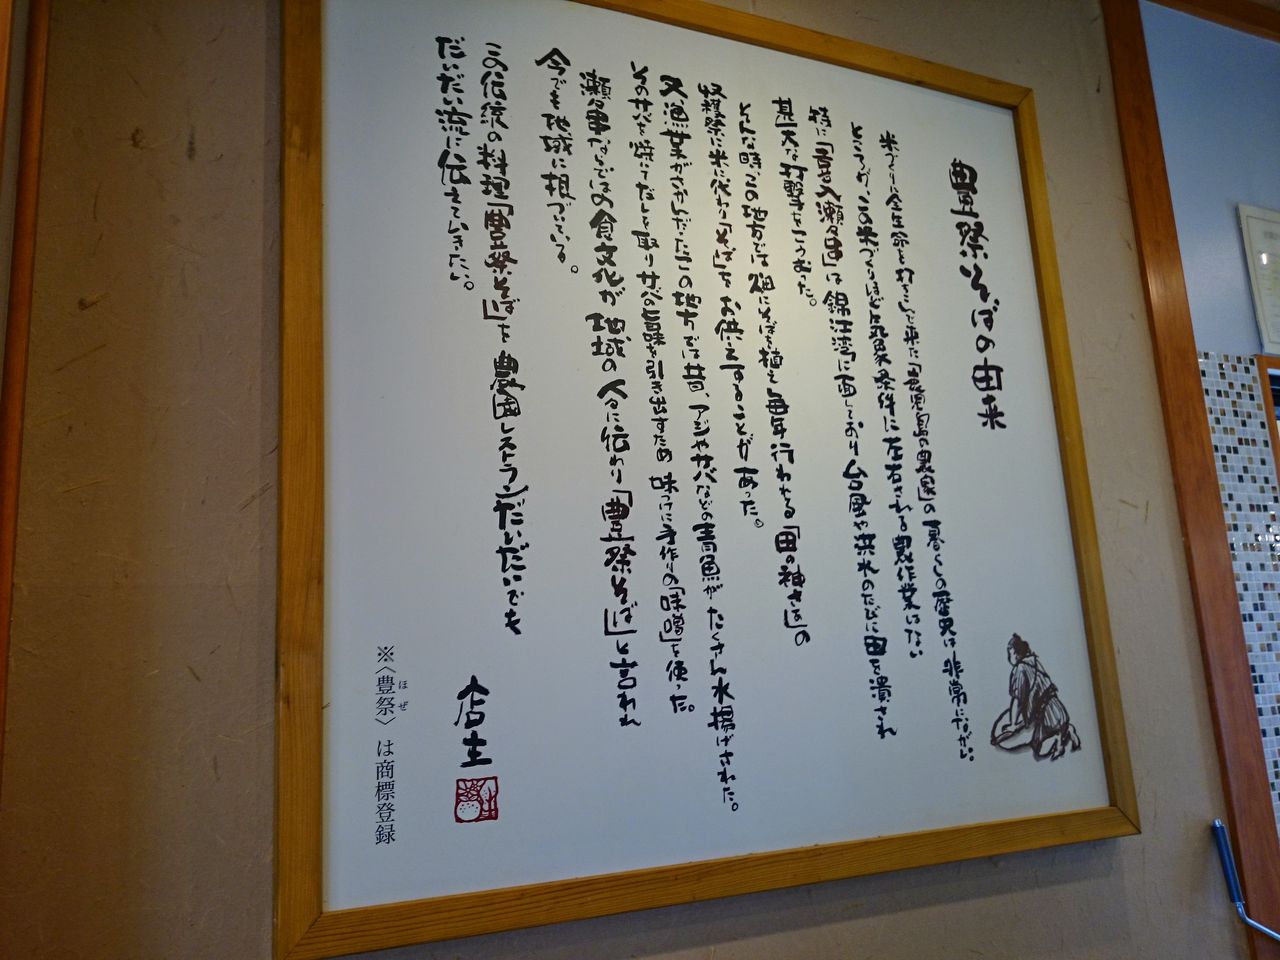 豊祭そばの由来
米づくりに全生命を打ちこんで来た「鹿児島の農家」の暮らしの歴史は非常にながい。
ところが、この米づくりほど気象条件に左右される農作業はない
特に「吾入瀬々串」は錦江湾に面しており台風や洪水のたびに田を潰され
甚大な打撃をこうむった。
そんな時、この地方では畑にそばを植え毎年行われる「田の神さあ」の
収穫祭に米に代わり「そば」をお供えすることがあった。
又漁業がさかんだったこの地方では昔、アジやサバなどの青魚がたくさん水揚げされた。
そのサバを焼いてだしを取りサバの旨味を引き出すため味つけに手作りの「味噌」を使った。
瀬々串ならではの食文化が地域の人々に伝わり「豊祭そば」と言われ
今でも地域に根づいている。
この伝統の料理「豊祭そば」を農園レストランだいだいでも
だいだい流に伝えていきたい。
店主
※〈豊祭〉は商標登録
ほぜ